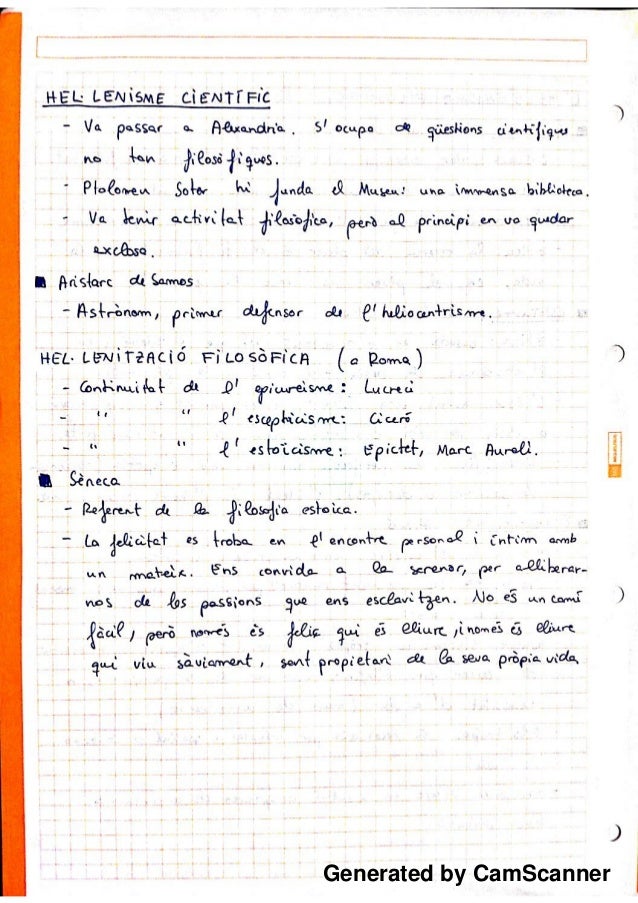 HEL·LENISME CIENTÍFIC
- Va passar a Alexandria. S'ocupa de qüestions científiques
no tan filosòfiques.
- Ptolomeu Soter hi funda el Museu: una immensa biblioteca.
- Va tenir activitat filosòfica, però al principi en va quedar
exclosa.
Aristarc de Samos
- Astrònom, primer defensor de l'heliocentrisme.
HEL·LENITZACIÓ FILOSÒFICA (a Roma)
- Continuitat de l'epicureisme: Lucreci
- " " l'escepticisme: Ciceró
- " " l'estoïcisme: Epictet, Marc Aureli.
Sèneca
- Referent de la filosofia estoica.
- La felicitat es troba en l'encontre personal i íntim amb
un mateix. Ens convida a la serenor, per alliberar-
nos de les passions que ens esclavitzen. No és un camí
fàcil, però només és feliç qui és lliure, i només és lliure
qui viu sàviament, sent propietari de la seva pròpia vida
Generated by CamScanner